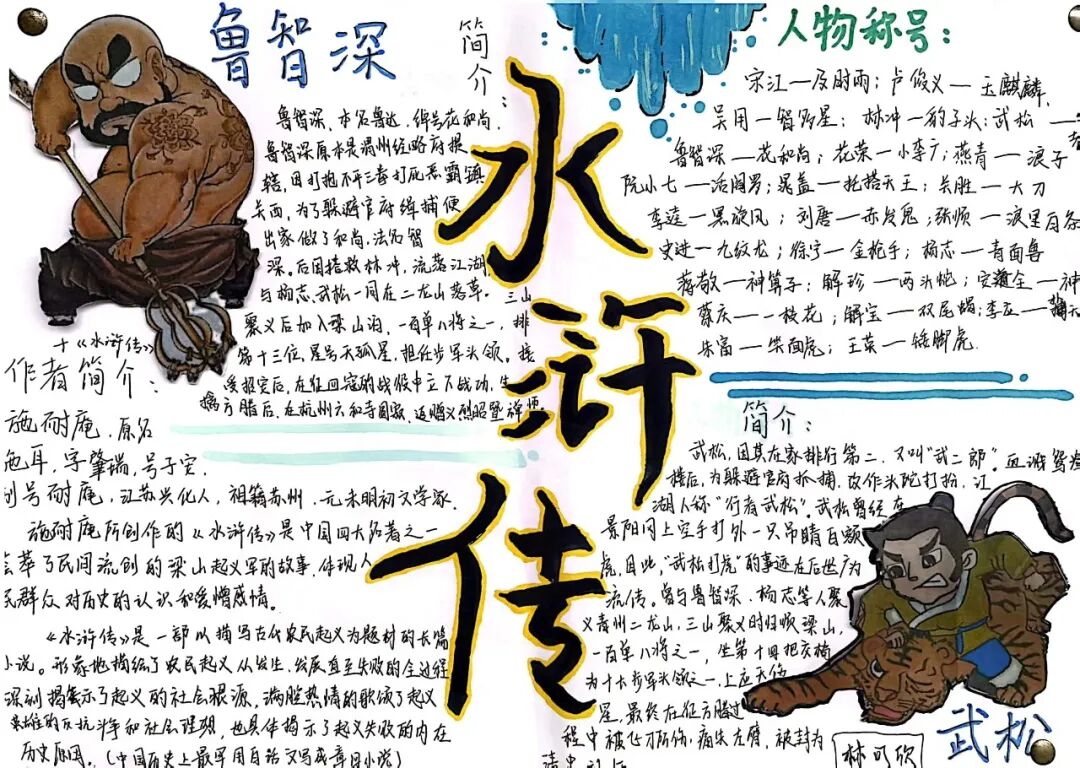 鲁智深
简介：
鲁智深，本名鲁达，绰号花和尚，
鲁智深原本是渭州经略府提
辖，因打抱不平三拳打死恶霸镇
关西，为了躲避官府缉捕便
出家做了和尚，法名智
深。后因搭救林冲，流落江湖
与杨志、武松一同在二龙山落草。三山
聚义后加入梁山泊，一百单八将之一，排
第十三位，星号天孤星，担任步军头领。接
受招安后，在征四寇的战役中立下战功，生
擒方腊后，在杭州六和寺圆寂，追赠义烈昭暨禅师。
水浒传
十《水浒传》
作者简介：
施耐庵，原名
施耳，字肇瑞，号子安
别号耐庵，江苏兴化人，祖籍苏州，元末明初文学家
施耐庵所创作的《水浒传》是中国四大名著之一
荟萃了民间流创的梁山起义军的故事，体现人
民群众对历史的认识和爱憎感情。
《水浒传》是一部以描写古代农民起义为题材的长篇
小说。形象地描绘了农民起义从发生、发展直至失败的全过程
深刻揭示了起义的社会根源，满腔热情的歌颂了起义
英雄的反抗斗争和社会理想，也具体揭示了起义失败的内在
历史原因。（中国历史上最早用白话文写成章回小说）
人物称号：
宋江—及时雨；卢俊义—玉麒麟，
吴用—智多星；林冲—豹子头；武松—
鲁智深—花和尚；花荣—小李广；燕青—浪子
阮小七—活阎罗；晁盖—托塔天王；关胜—大刀
李逵—黑旋风；刘唐—赤发鬼；张顺—浪里白条
史进—九纹龙；徐宁—金枪手；杨志—青面兽
蒋敬—神算子；解珍—两头蛇；安道全—神
蔡庆—一枝花；解宝—双尾蝎；李应—扑天
朱富—笑面虎；王英—矮脚虎.
简介：
武松，因其在家排行第二，又叫“武二郎”。血溅鸳鸯
楼后，为躲避官府抓捕，改作头陀打扮，江
湖人称“行者武松”。武松曾经在
景阳冈上空手打外一只吊睛白额
虎，因此，“武松打虎”的事迹在后世广为
流传。曾与鲁智深、杨志等人聚
义青州二龙山，三山聚义时归顺梁山，
一百单八将之一，坐第十四把交椅
为十大步军头领之一，上应天伤
星，最终在征方腊过
程中被飞刀所伤，痛失左臂，被封为
林可欣
武松